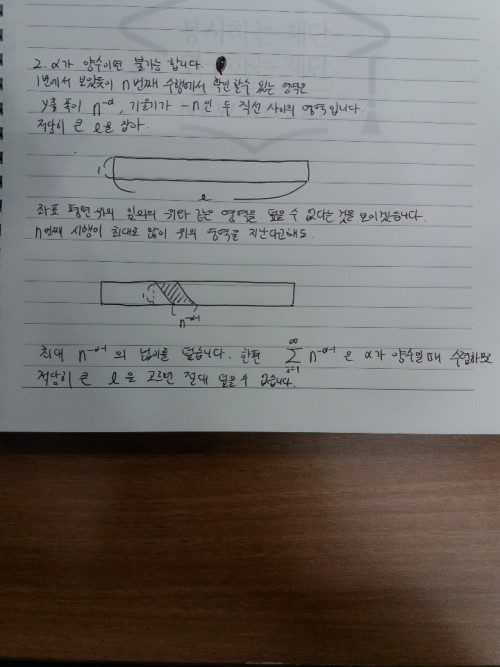 2. α가 양수이면 불가능 합니다.
1번에서 보았듯이 n번째 수행에서 확인할수 있는 영역은
y축 폭이 n^-α, 기울기가 -n인 두 직선 사이의 영역입니다.
적당히 큰 l을 잡아.
1
l
좌표 평면 위의 임의의 위와 같은 영역을 덮을 수 없다는 것을 보이겠습니다.
n번째 시행이 최대로 많이 위의 영역을 지난다고해도.
1
n^-α-1
최대 n^-α-1 의 넓이를 덮습니다. 한편 ∞∑i=1 n^-α-1 은 α가 양수일 때 수렴하므로
적당히 큰 l 을 고르면 절대 덮을 수 없습니다.